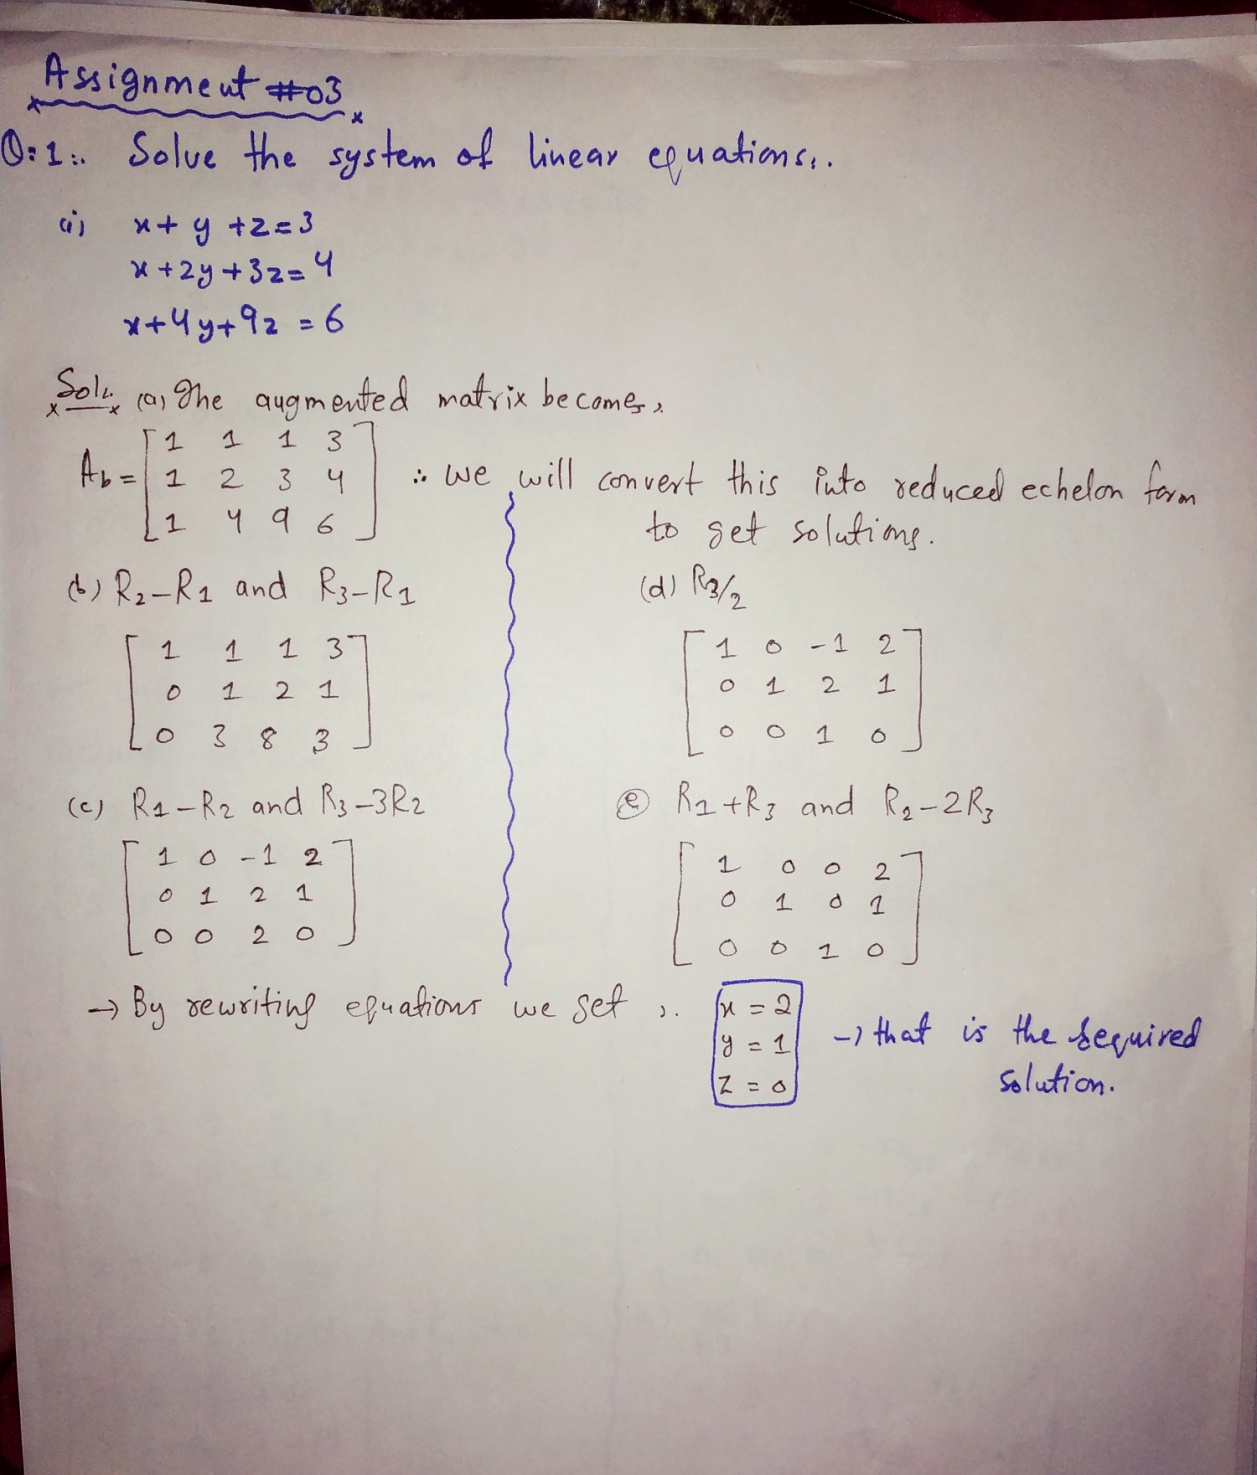 Assignment #03
Q:1:. Solve the system of linear equations:.
(i) x+ y +z=3
x+2y+3z=4
x+4y+9z=6
Sol:. (a) The augmented matrix becomes,
Ab= [1 1 1 3
1 2 3 4
1 4 9 6]
∴ we will convert this into reduced echelon form
to get solutions.
(b) R2-R1 and R3-R1
[1 1 1 3
0 1 2 1
0 3 8 3]
(c) R1-R2 and R3-3R2
[1 0 -1 2
0 1 2 1
0 0 2 0]
(d) R3/2
[1 0 -1 2
0 1 2 1
0 0 1 0]
(e) R1+R3 and R2-2R3
[1 0 0 2
0 1 0 1
0 0 1 0]
→ By rewriting equations we get :.
x = 2
y = 1
z = 0
→ that is the required
solution.